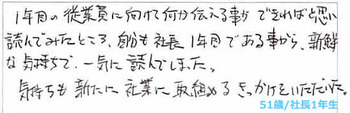 1年目の従業員に向けて何か伝える事ができればと思い
読んでみたところ、自分も社長1年目である事から、新鮮
な気持ちで、一気に読んでしまった。
気持ちも新たに企業に取組めるきっかけをいただいた。
51歳/社長1年生